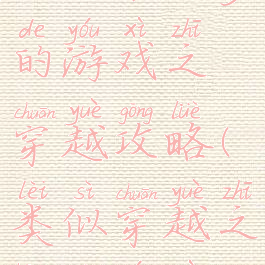 de yóu xì zhī
的游戏之
chuān yuè gōng lüè
穿越攻略(
lèi sì chuān yuè zhī
类似穿越之